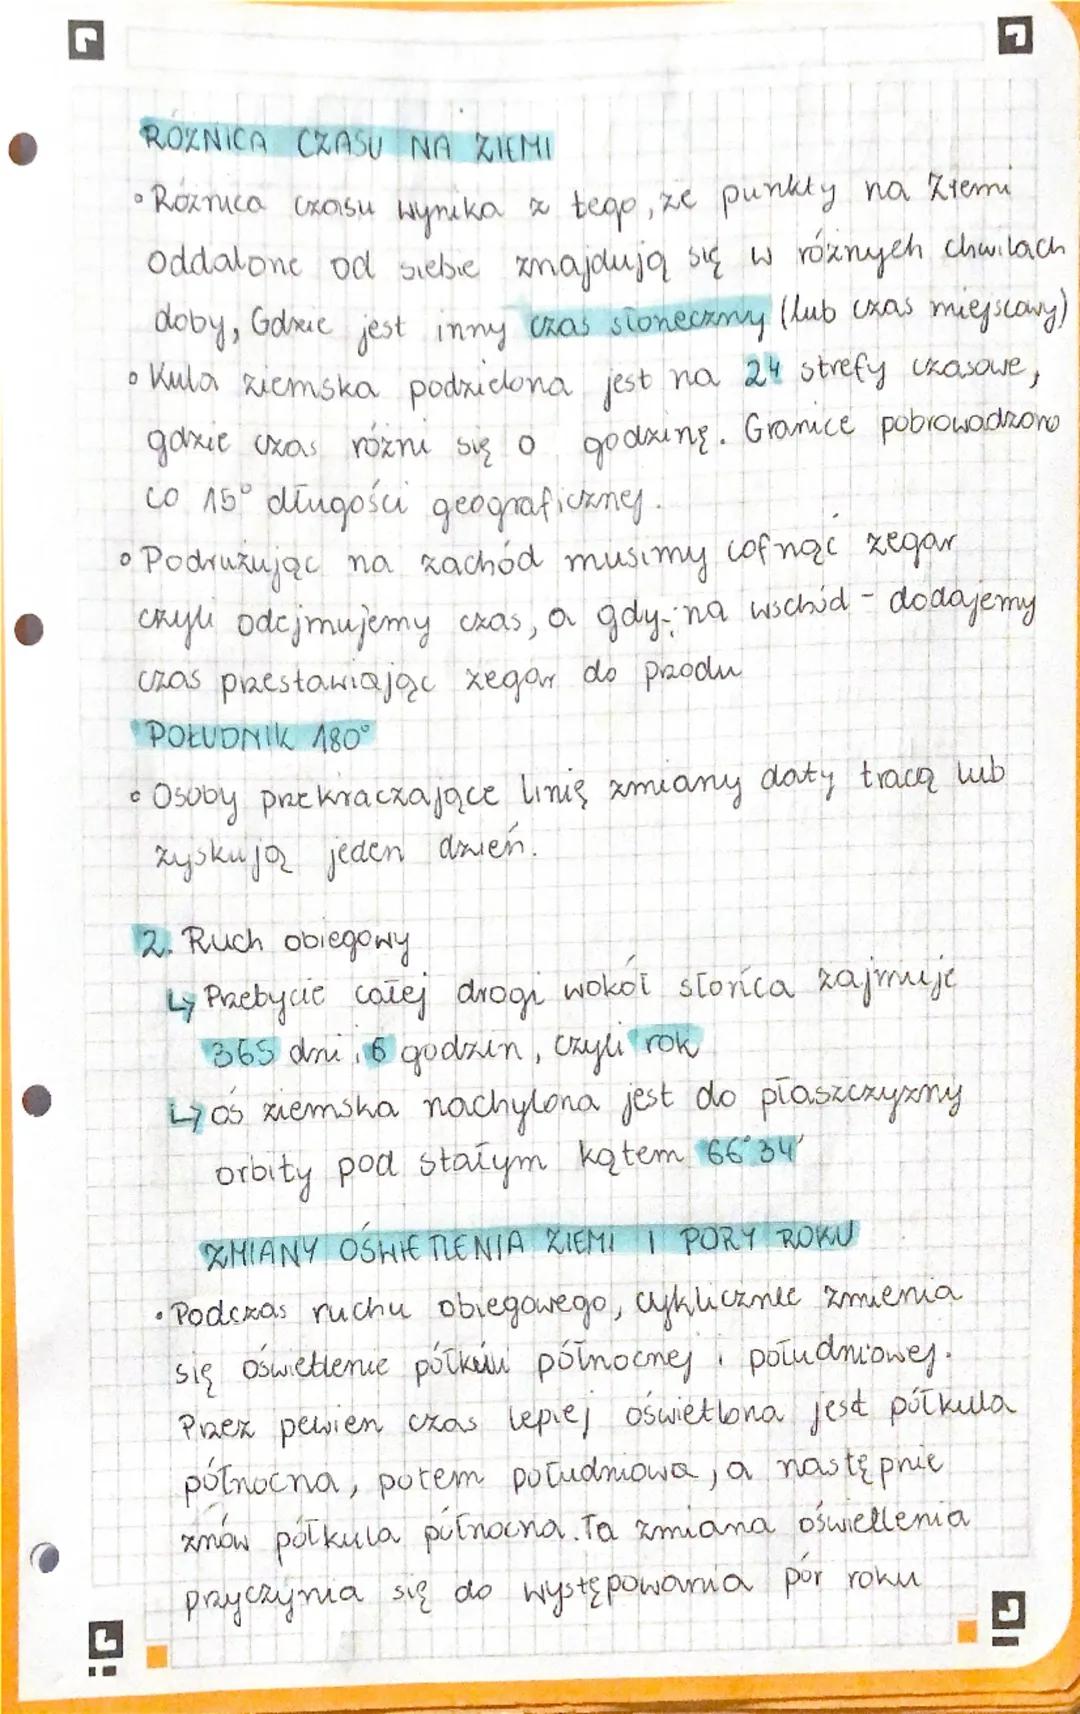 RÓŻNICA CZASU NA ZIEMI
• Różnica czasu wynika z tego, że punkty na Ziemi
oddalone od siebie znajdują się w różnych chwilach
doby, Gdzie jest inny czas słoneczny (lub czas miejscowy)
• Kula ziemska podzielona jest na 24 strefy czasowe,
gdzie czas różni się o godzinę. Granice pobrowadzono
co 15° długości geograficznej.
• Podrużując na zachód musimy cofnąć zegar
czyli odejmujemy czas, a gdy na wschód - dodajemy
czas przestawiając zegar do przodu
POŁUDNIK 180°
• Osoby przekraczające linię zmiany daty tracą lub
zyskują jeden dzień.
2. Ruch obiegowy
↳ Przebycie całej drogi wokół słońca zajmuje
365 dni i 6 godzin, czyli rok
↳ oś ziemska nachylona jest do płaszczyzny
orbity pod stałym kątem 66°34'
ZMIANY OŚWIETLENIA ZIEMI I PORY ROKU
• Podczas ruchu obiegowego, cyklicznie zmienia
się oświetlenie półkuli północnej i południowej.
Przez pewien czas lepiej oświetlona jest półkula
północna, potem południowa, a następnie
znów półkula północna. Ta zmiana oświetlenia
przyczynia się do występowania pór roku